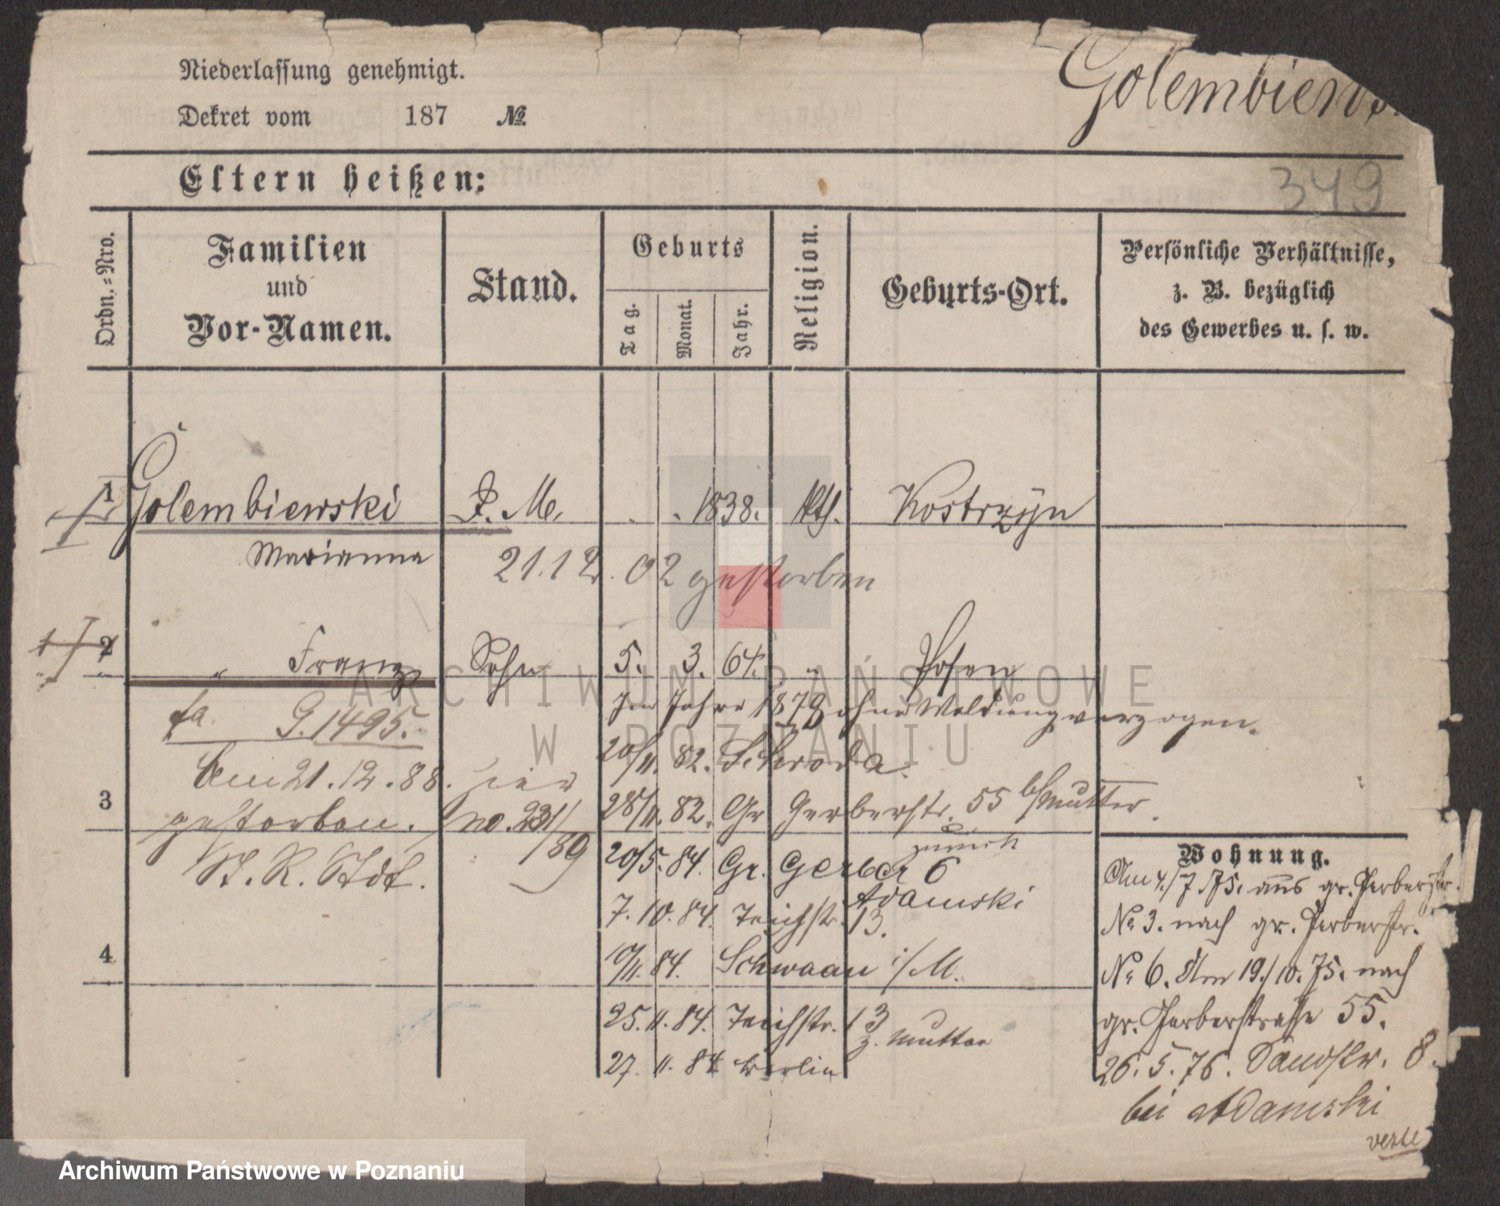 Niederlassung genehmigt.
Golembiews
Dekret vom 187 №
Eltern heißen:
349
Ordn.-Nro.
Familien und Vor-Namen.
Stand.
Geburts
Tag.
Monat.
Jahr.
Religion.
Geburts-Ort.
Persönliche Verhältnisse, z. B. bezüglich des Gewerbes u. s. w.
1 Golembiewski . M. . . 1838. kth. Kostrzyn
Marianna 21.12. 02 gestorben
2 " Franz Sohn 5. 3. 64. " Posen
Im Jahre 1878 ohne Meldung verzogen.
fa. G. 1495.
20/11. 82. Schroda.
Am 21.12.88. hier
3 28/11. 82. Gr Gerberstr. 55 b/Mutter.
gestorben. no. 231/89
zurück
20/5. 84. Gr. Gerber 6
St. R. Stdt.
Adamski
7. 10. 84. Teichstr. 13.
4 10/11. 84. Schwaan i/M.
25. 11. 84. Teichstr. 13
z. Mutter
27. 11. 84 Berlin
Wohnung.
Am 4./7. 75. aus gr. Gerberstr.
№ 3. nach gr. Gerberstr.
№ 6. Am 19./10. 75. nach
gr. Gerberstrasse 55.
26. 5. 76. Sandstr. 8.
bei Adamski
verte
ARCHIWUM PAŃSTWOWE
W POZNANIU
Archiwum Państwowe w Poznaniu